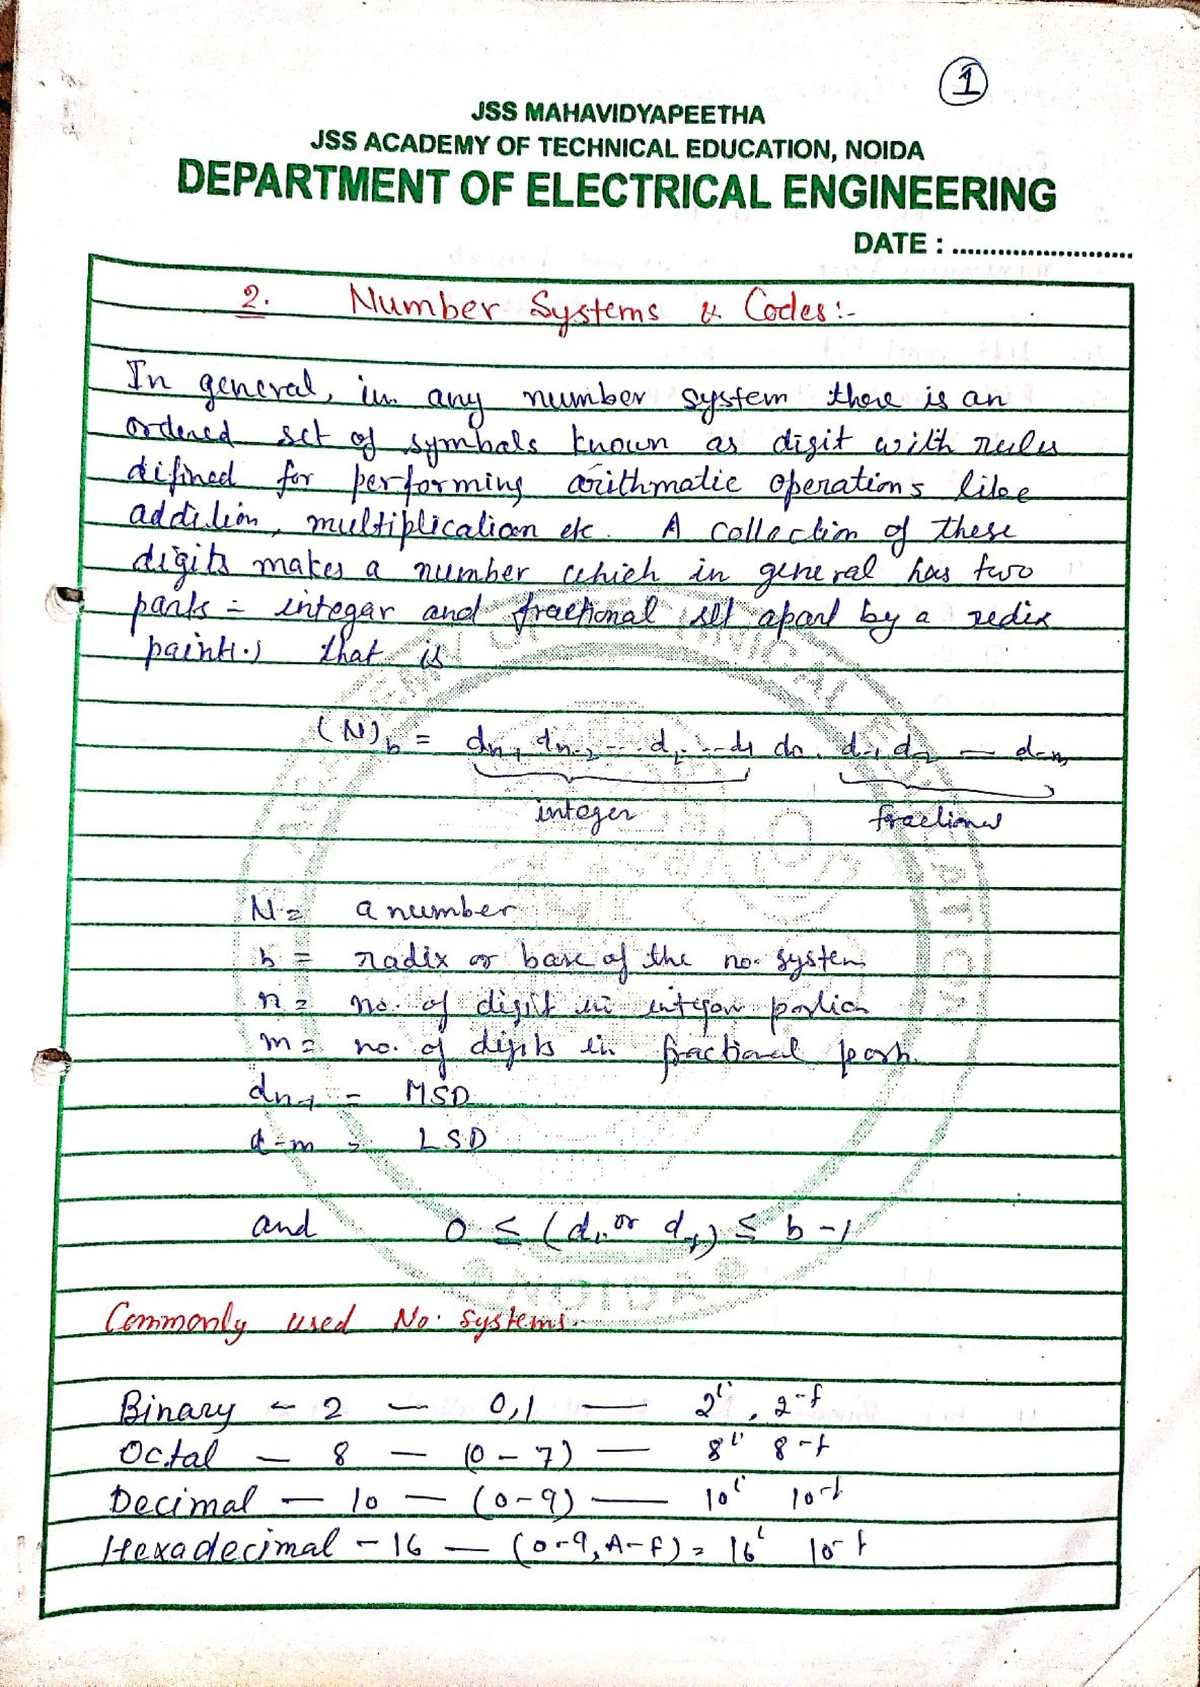 1
JSS MAHAVIDYAPEETHA
JSS ACADEMY OF TECHNICAL EDUCATION, NOIDA
DEPARTMENT OF ELECTRICAL ENGINEERING
DATE : ............................
2. Number Systems & Codes:-
In general, in any number system there is an
ordered set of symbols known as digit with rules
difined for performing arithmatic operations like
addition, multiplication etc. A collection of these
digits makes a number which in general has two
parts = integar and fractional set apart by a redix
paint(.) that is
(N)b = dn-1 dn-2 --- di --- d1 d0 . d-1 d-2 — d-m
integer fractional
N = a number
b = radix or base of the no. system
n = no. of digit in integar portion
m = no. of digits in fractional part.
dn-1 = MSD
d-m = LSD
and 0 ≤ (di or d-f) ≤ b-1
Commonly used No. systems.
Binary - 2 — 0,1 — 2^i . 2^-f
Octal — 8 — (0-7) — 8^i 8^-f
Decimal — 10 — (0-9) — 10^i 10^-f
Hexadecimal - 16 — (0-9, A-F) = 16^i 10^-f
NOIDA